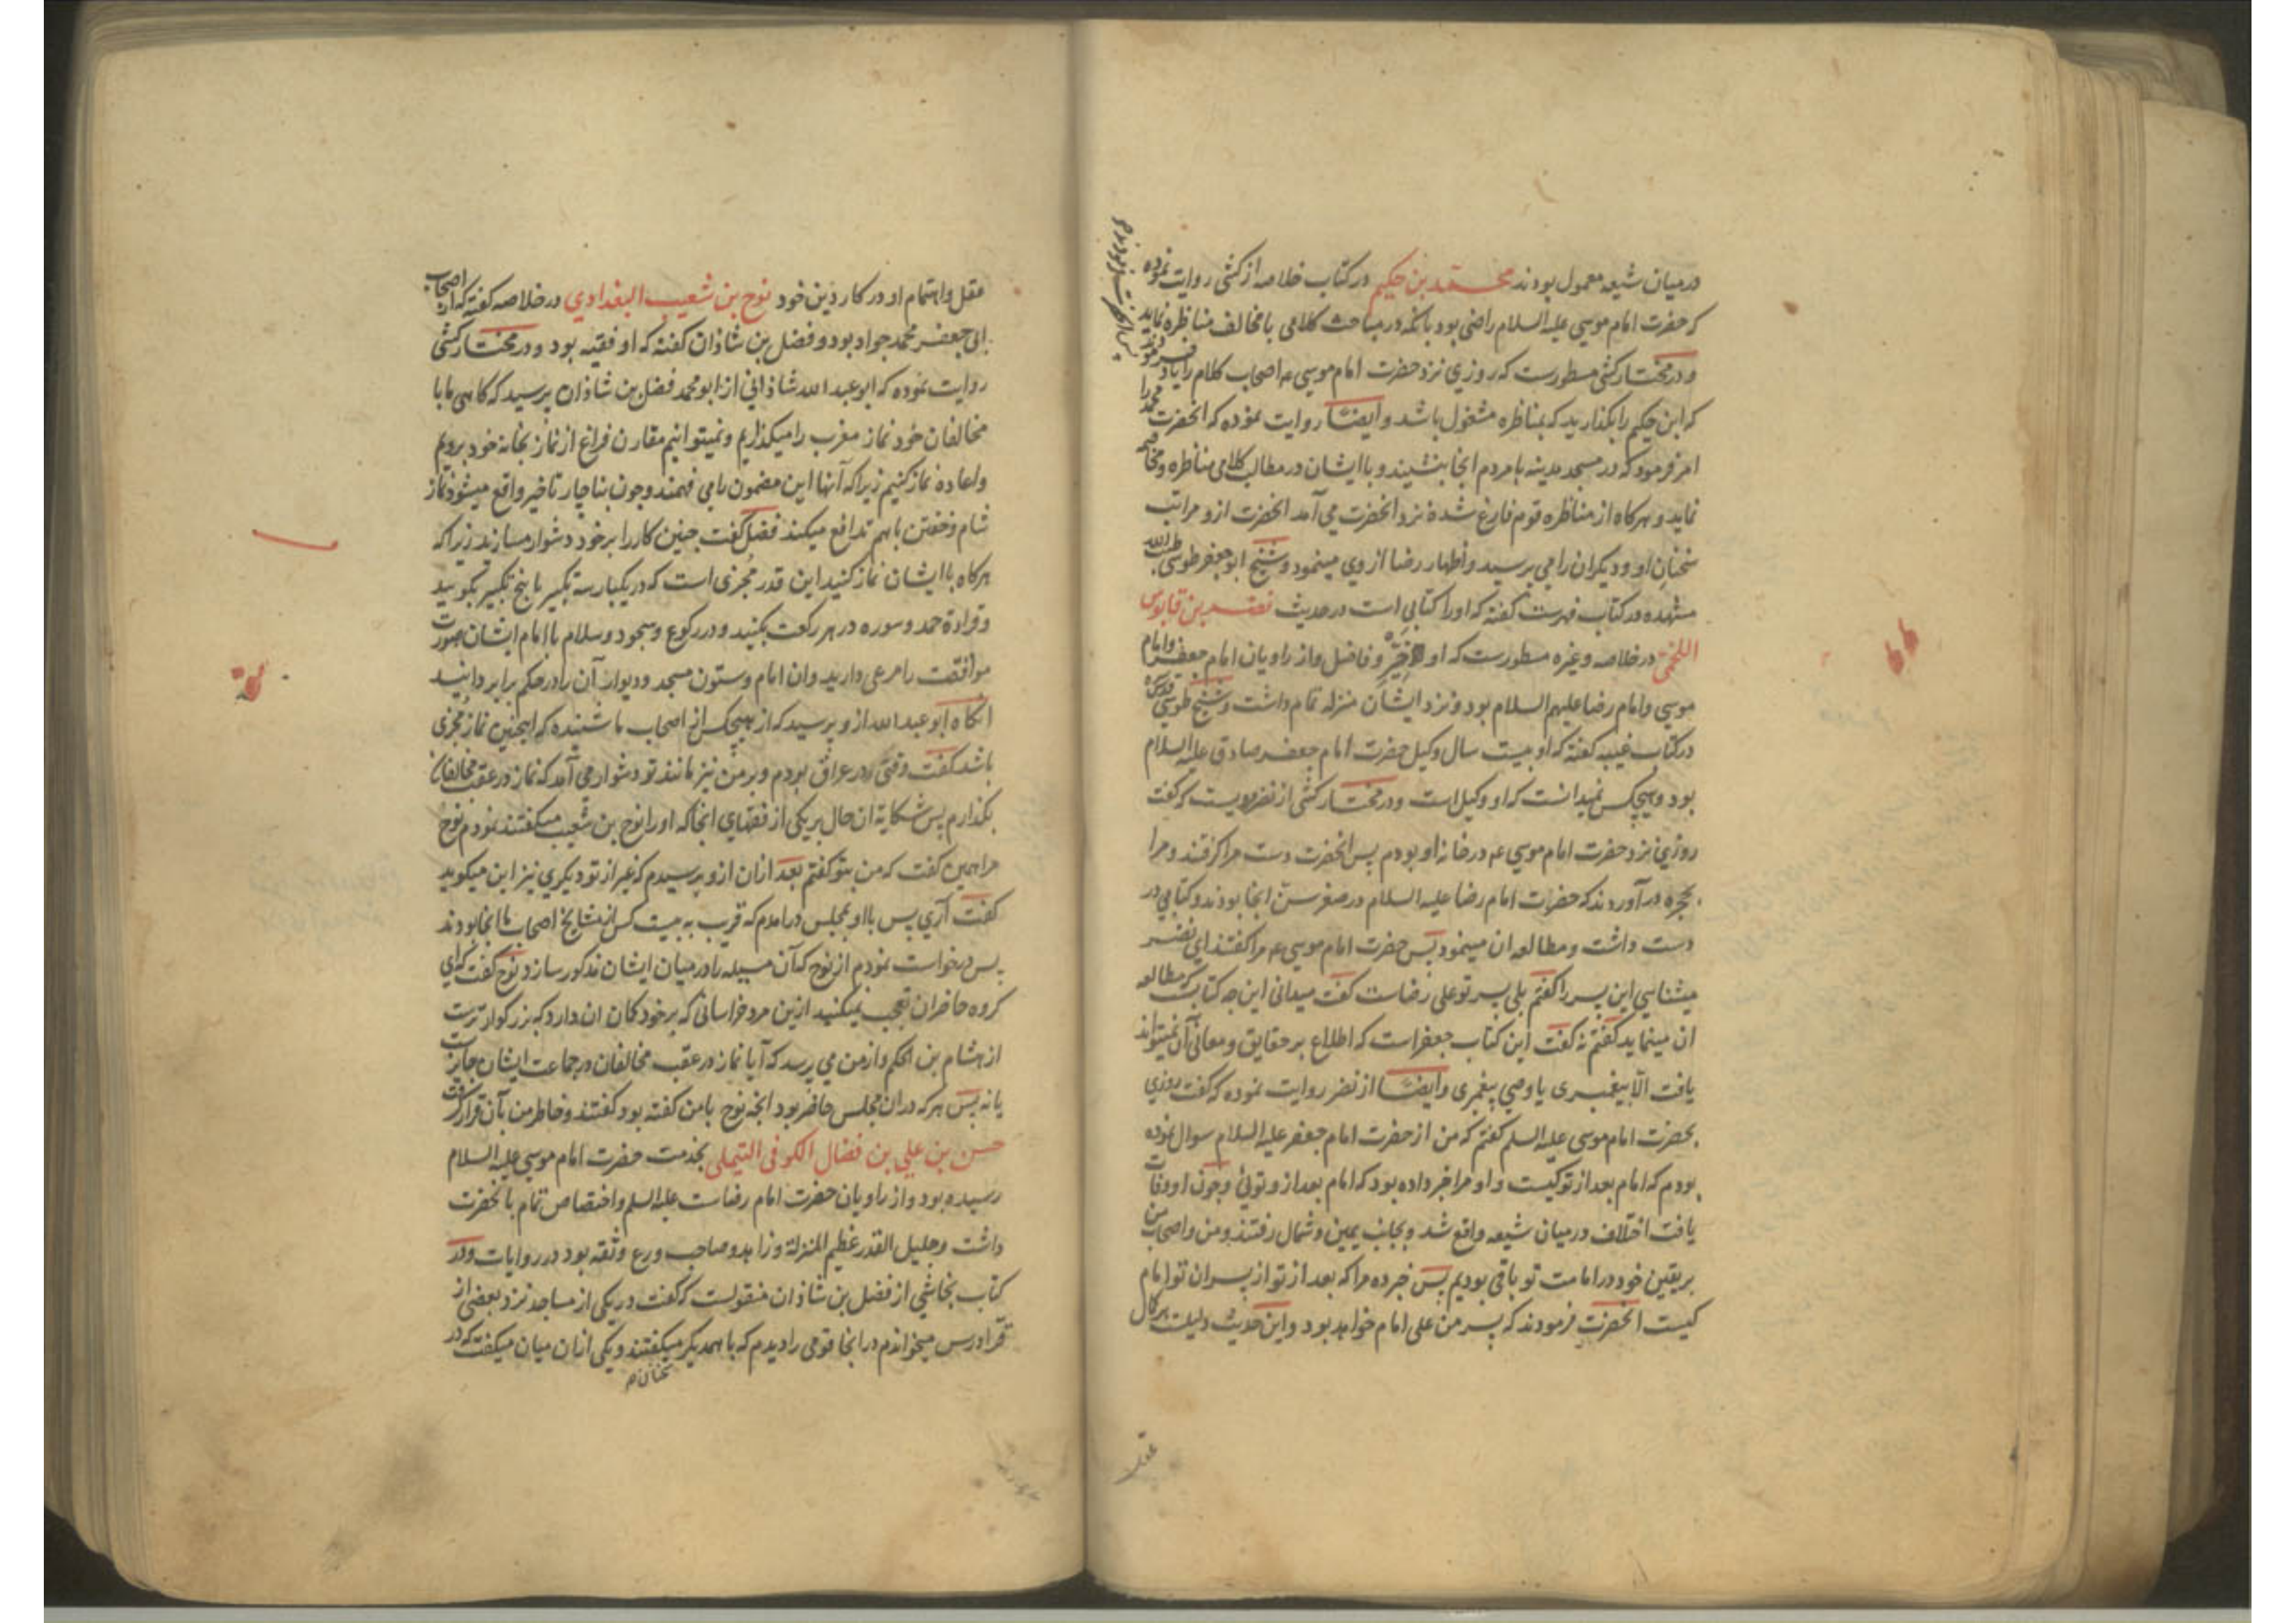 درمیان شیعه معمول بودند محمد بن حکیم در کتاب خلاصه از کشی روایت نموده
که حضرت امام موسی علیه السلام راضی بود بانکه در مباحث کلامی با مخالف مناظره نماید
و در مختار کشی مسطورست که روزی نزد حضرت امام موسی ع اصحاب کلام را یاد
که ابن حکیم را بگذارید که بمناظره مشغول باشد و ایضا روایت نموده که انحضرت محمد را
امر فرمود که در مسجد مدینه با مردم انجا بنشیند و با ایشان در مطالب کلامی مناظره و مخاصمه
نماید و هرکاه از مناظره قوم فارغ شده نزد انحضرت می آمد انحضرت ازو مراتب
سخنان او و دیکران را می پرسید و اظهار رضا از وی مینمود و شیخ ابو جعفر طوسی
مشهده در کتاب فهرست کفته که او را کتابی است در حدیث نصر بن قابوس
اللخمی در خلاصه و غیره مسطورست که او خیّر و فاضل و از راویان امام جعفر و امام
موسی و امام رضا علیهم السلام بود و نزد ایشان منزله تمام داشت و شیخ طوسی
در کتاب غیبه کفته که او بیست سال وکیل حضرت امام جعفر صادق علیه السلام
بود و هیچکس نمیدانست که او وکیل است و در مختار کشی از نصر مرویست که کفت
روزی نزد حضرت امام موسی ع در خانه او بودم پس انحضرت دست مرا کرفتند و مرا
بحجره در آوردند که حضرت امام رضا علیه السلام در صغر سن انجا بودند و کتابی در
دست داشت و مطالعه ان مینمود پس حضرت امام موسی ع مرا کفتند ای نصر
میشناسی این پسر را کفتم بلی پسر تو علی رضاست کفت میدانی این چه کتاب که مطالعه
ان مینماید کفتم نه کفت این کتاب جعفر است که اطلاع بر حقایق و معانی آن نمیتواند
یافت الا پیغمبری یا وصی پیغمبری و ایضا از نصر روایت نموده که کفت روزی
بحضرت امام موسی علیه السلم کفتم که من از حضرت امام جعفر علیه السلام سوال نموده
بودم که امام بعد از تو کیست و او مرا خبر داده بود که امام بعد از و توئی و چون او وفات
یافت اختلاف در میان شیعه واقع شد و بجانب یمین و شمال رفتند و من و اصحاب من
بر یقین خود در امامت تو باقی بودیم پس خبر ده مرا که بعد از تو از پسران تو امام
کیست انحضرت فرمودند که پسر من علی امام خواهد بود و این حدیث دلیلست بر کمال
عقل
عقل و اهتمام او در کار دین خود نوح بن شعیب البغدادی در خلاصه کفته که از اصحاب
ابی جعفر محمد جواد بود و فضل بن شاذان کفته که او فقیه بود و در مختار کشی
روایت نموده که ابو عبد الله شاذانی از ابو محمد فضل بن شاذان پرسید که کاهی ما با
مخالفان خود نماز مغرب را میکذاریم و نمیتوانیم مقارن فراغ از نماز بخانه خود برویم
و اعاده نماز کنیم زیرا که آنها این مضمون را می فهمند و چون بناچار تاخیر واقع میشود نماز
شام و خفتن باهم تدافع میکند فضل کفت چنین کار را بر خود دشوار مسازید زیرا که
هرکاه با ایشان نماز کنید این قدر مجزی است که در یکبار سه تکبیر یا پنج تکبیر بکویید
و قراءة حمد و سوره در هر رکعت بکنید و در رکوع و سجود و سلام با امام ایشان صورت
موافقت را مرعی دارید وان امام و ستون مسجد و دیوار آن را در حکم برابر دانید
انکاه ابو عبد الله از و پرسید که از هیچکس از اصحاب ما شنیده که اینچنین نماز مجزی
باشد کفت وقتی در عراق بودم و بر من نیز مانند تو دشوار می آمد که نماز در عقب مخالفان
بکذارم پس شکایة ان حال بر یکی از فقهای انجا که او را نوح بن شعیب میکفتند نمودم نوح
مرا همین کفت که من بتو کفتم بعد ازان ازو پرسیدم که غیر از تو دیکری نیز این میکوید
کفت آری پس با او بمجلس درامدم که قریب به بیست کس از مشایخ اصحاب ما انجا بودند
پس درخواست نمودم از نوح که آن مسیله را در میان ایشان مذکور سازد نوح کفت که ای
کروه حاضران تعجب نمیکنید ازین مرد خراسانی که بر خود کمان ان دارد که بزرکوارترست
از هشام بن الحکم و از من می پرسد که آیا نماز در عقب مخالفان در جماعت ایشان جایزست
یا نه پس هرکه دران مجلس حاضر بود انچه نوح با من کفته بود کفتند و خاطر من بآن قرار کرفت
حسن بن علی بن فضال الکوفی التیملی بخدمت حضرت امام موسی علیه السلام
رسیده بود و از راویان حضرت امام رضاست علیه السلم و اختصاص تمام بانحضرت
داشت و جلیل القدر عظیم المنزلة و زاهد و صاحب ورع و ثقه بود در روایات و در
کتاب نجاشی از فضل بن شاذان منقولست که کفت در یکی از مساجد نزد بعضی از
قرا درس میخواندم در انجا قومی را دیدم که با همدیکر میکفتند و یکی ازان میان میکفت که در
سخنان م